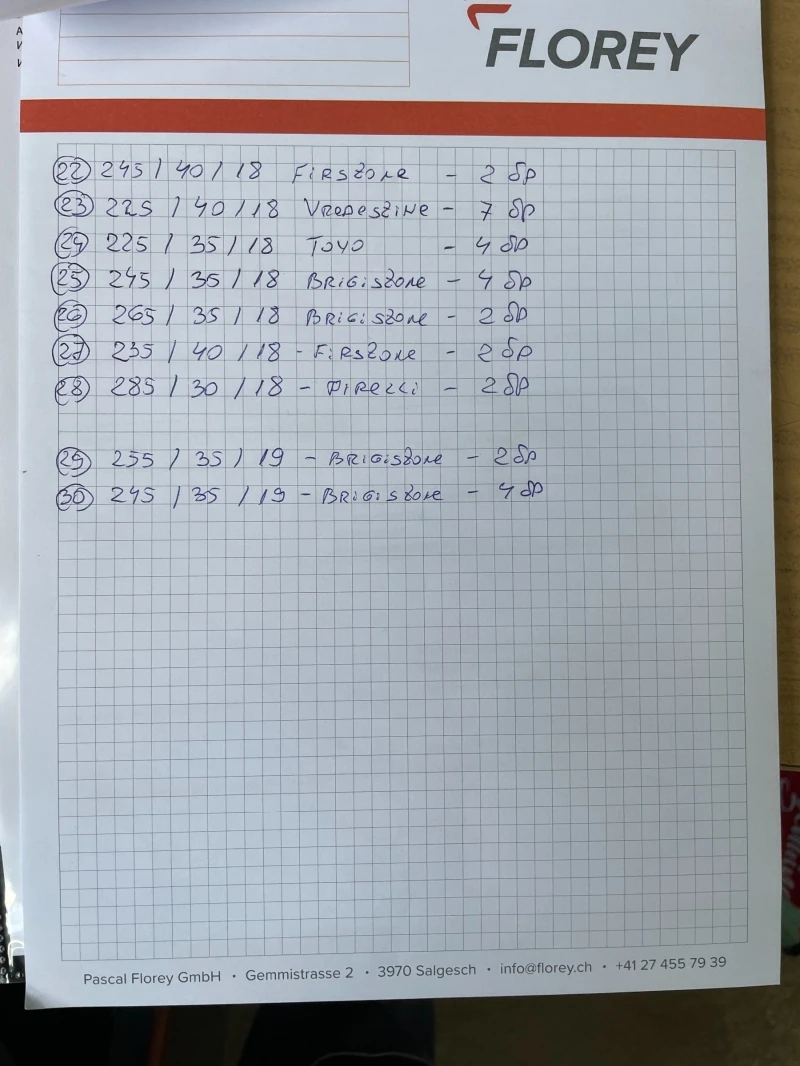 FLOREY
22 245 / 40 / 18 FirsTone - 2 бр
23 225 / 40 / 18 VredesTine - 7 бр
24 225 / 35 / 18 Toyo - 4 бр
25 245 / 35 / 18 BrigisTone - 4 бр
26 265 / 35 / 18 BrigisTone - 2 бр
27 235 / 40 / 18 - FirsTone - 2 бр
28 285 / 30 / 18 - Pirelli - 2 бр
29 255 / 35 / 19 - BrigisTone - 2 бр
30 245 / 35 / 19 - BrigisTone - 4 бр
Pascal Florey GmbH • Gemmistrasse 2 • 3970 Salgesch • info@florey.ch • +41 27 455 79 39